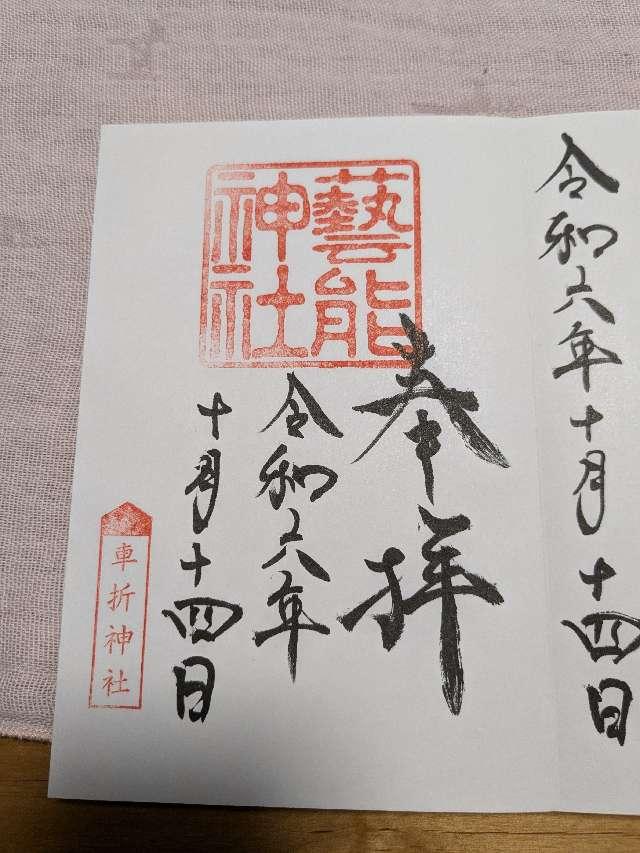 令和六年十月十四日
藝能
神社
奉拝
令和六年
十月十四日
車折神社